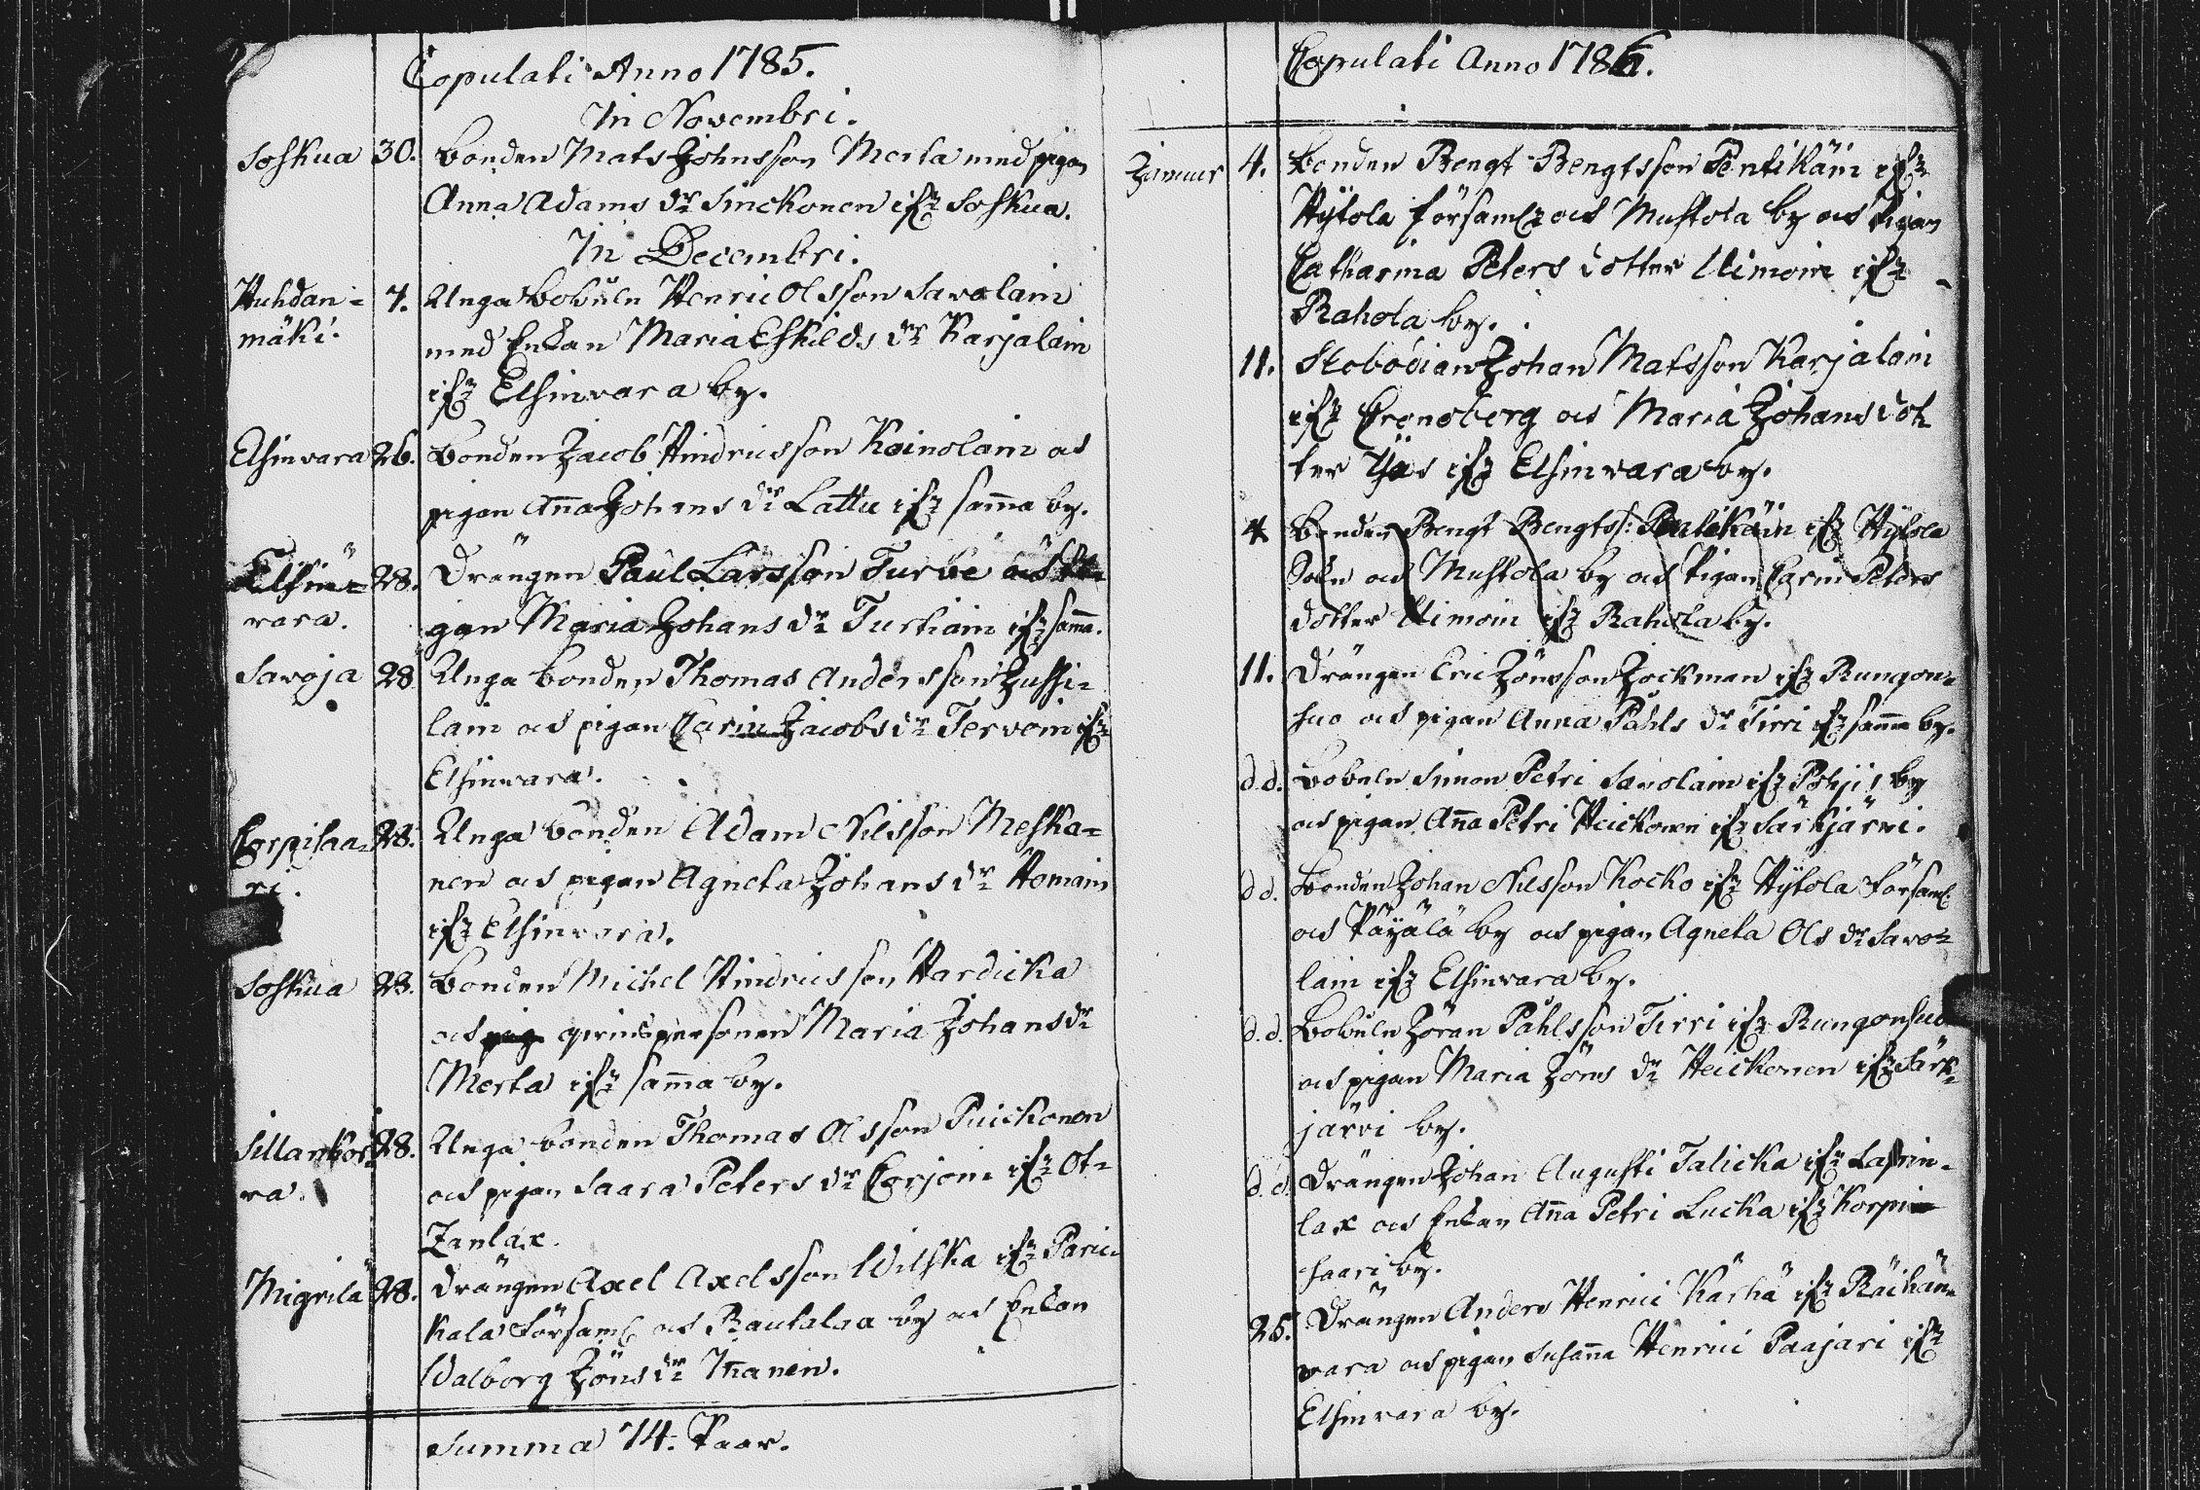 Copulati Anno 1785.
In Novembri.
Soskua 30. Bonden Mats Johnsson Merta med pigan
Anna Adams dr Sinckonen ifr Soskua.
In Decembri.
Huhdan- 7. Unga Bobuln Henric Olsson Savolain
mäki. med Enkan Maria Eskilds dr Karjalain
ifr Elsinvara by.
Elsinvara 26. Bonden Jacob Hindricsson Koinolain och
pigan Anna Johans dr Lattu ifr samma by.
Elsin- 28. Drängen Paul Larsson Turve och
vara. gan Maria Johans dr Turkiain ifr samma.
Savoja 28 Unga bonden Thomas Andersson Jussi-
lain och pigan Carin Jacobs dr Tervoin ifr
Elsinvara.
Corpisaa- 28. Unga bonden Adam Nilsson Meska-
ri. nen och pigan Agneta Johans dr Homain
ifr Elsinvara.
Soskua 28. Bonden Michel Hindricsson Hardicka
och qvinspersonen Maria Johans dr
Merta ifr samma by.
Sillankor- 28. Unga bonden Thomas Olsson Puickonen
va. och pigan Saara Peters dr Corjoin ifr Ot-
Zanlax.
Migrila 28. Drängen Axel Axelsson Wilska ifr Paric-
kala Församl och Rautalaa by och Enkan
Walborg Jöns dr Innanen.
Summa 74. Paar.
Copulati Anno 1786.
Januar 4. Bonden Bengt Bengtsson Pentikäin ifr
Hytola församl och Mustola by och Pigan
Catharina Peters dotter Uimoin ifr
Rahola by.
11. Johan Matsson Karjalain
ifr Cronoberg och Maria Johans dot
ter Yäs ifr Elsinvara by.
4 Bonden Bengt Bengts: Pentikäin ifr Hytola
Sokn och Mustola by och Pigan Carin Peters
dotter Uimoin ifr Rahola by.
11. Drängen Eric Jönsson Jockman ifr Rungon-
suo och pigan Anna Påhls dr Tirri ifr samma by.
d.d. Bobuln Simon Petri Savolain ifr Pohji by
och pigan Anna Petri Heickonen ifr Särkjärvi.
d d. Bonden Johan Nilsson Kocko ifr Hytola Församl.
och Päyälä by och pigan Agneta Ols dr Savo-
lain ifr Elsinvara by.
d.d. Bobuln Jöran Påhlsson Tirri ifr Rungonsuo
och pigan Maria Jöns dr Heickonen ifr Särk-
järvi by.
d.d. Drängen Johan Augusti Talicka ifr Lasrin-
lax och Enkan Anna Petri Lucka ifr Korpi
saari by.
25. Drängen Anders Henrici Kärhä ifr Räihän-
vara och pigan Susanna Henrici Paajari ifr
Elsinvara by.